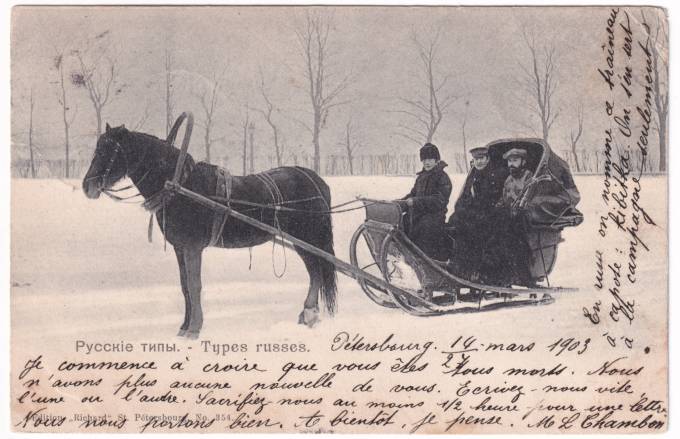 En russe on nomme ce traîneau
à capote : kibitka. On s'en sert
à la campagne seulement
Русскіе типы. - Types russes.
Pétersbourg. 14/27 mars 1903
Je commence à croire que vous êtes tous morts. Nous
n'avons plus aucune nouvelle de vous. Ecrivez-nous vite
l'une ou l'autre. Sacrifiez-nous au moins 1/2 heure pour une lettre
Edition „Richard" St. Pétersbourg, No. 354.
Nous nous portons bien. A bientôt, je pense. M L Chambon